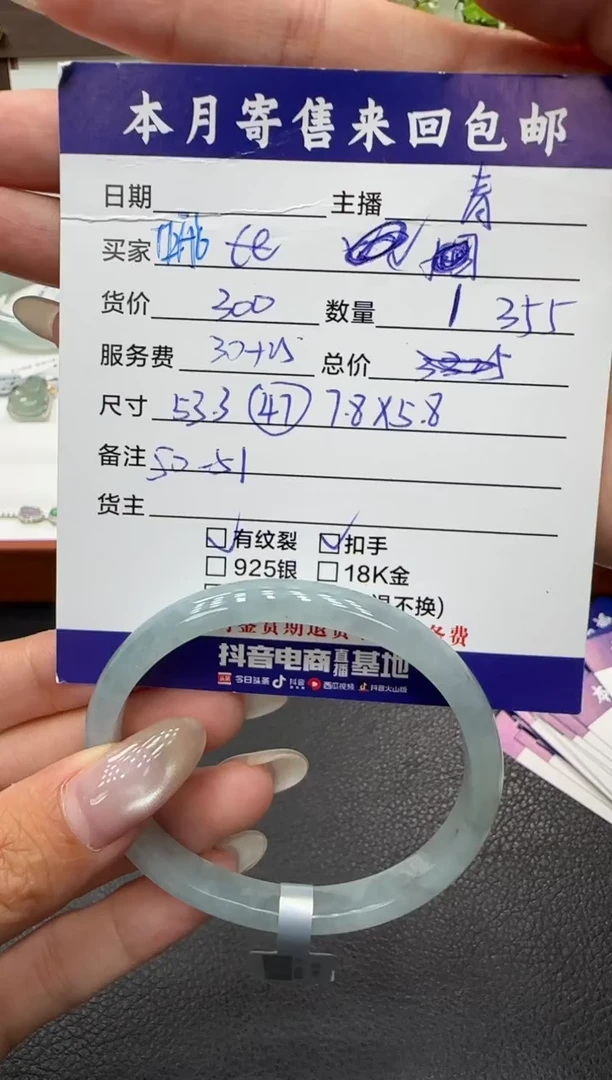 本月寄售来回包邮
日期 主播 青
买家
货价 300 数量 1 355
服务费 30+25 总价
尺寸 53.3 47 7.8X5.8
备注 50-51
货主
有纹裂 扣手
925银 18K金
不换)
抖音电商直播基地
今日头条 抖音 西瓜视频 抖音火山版